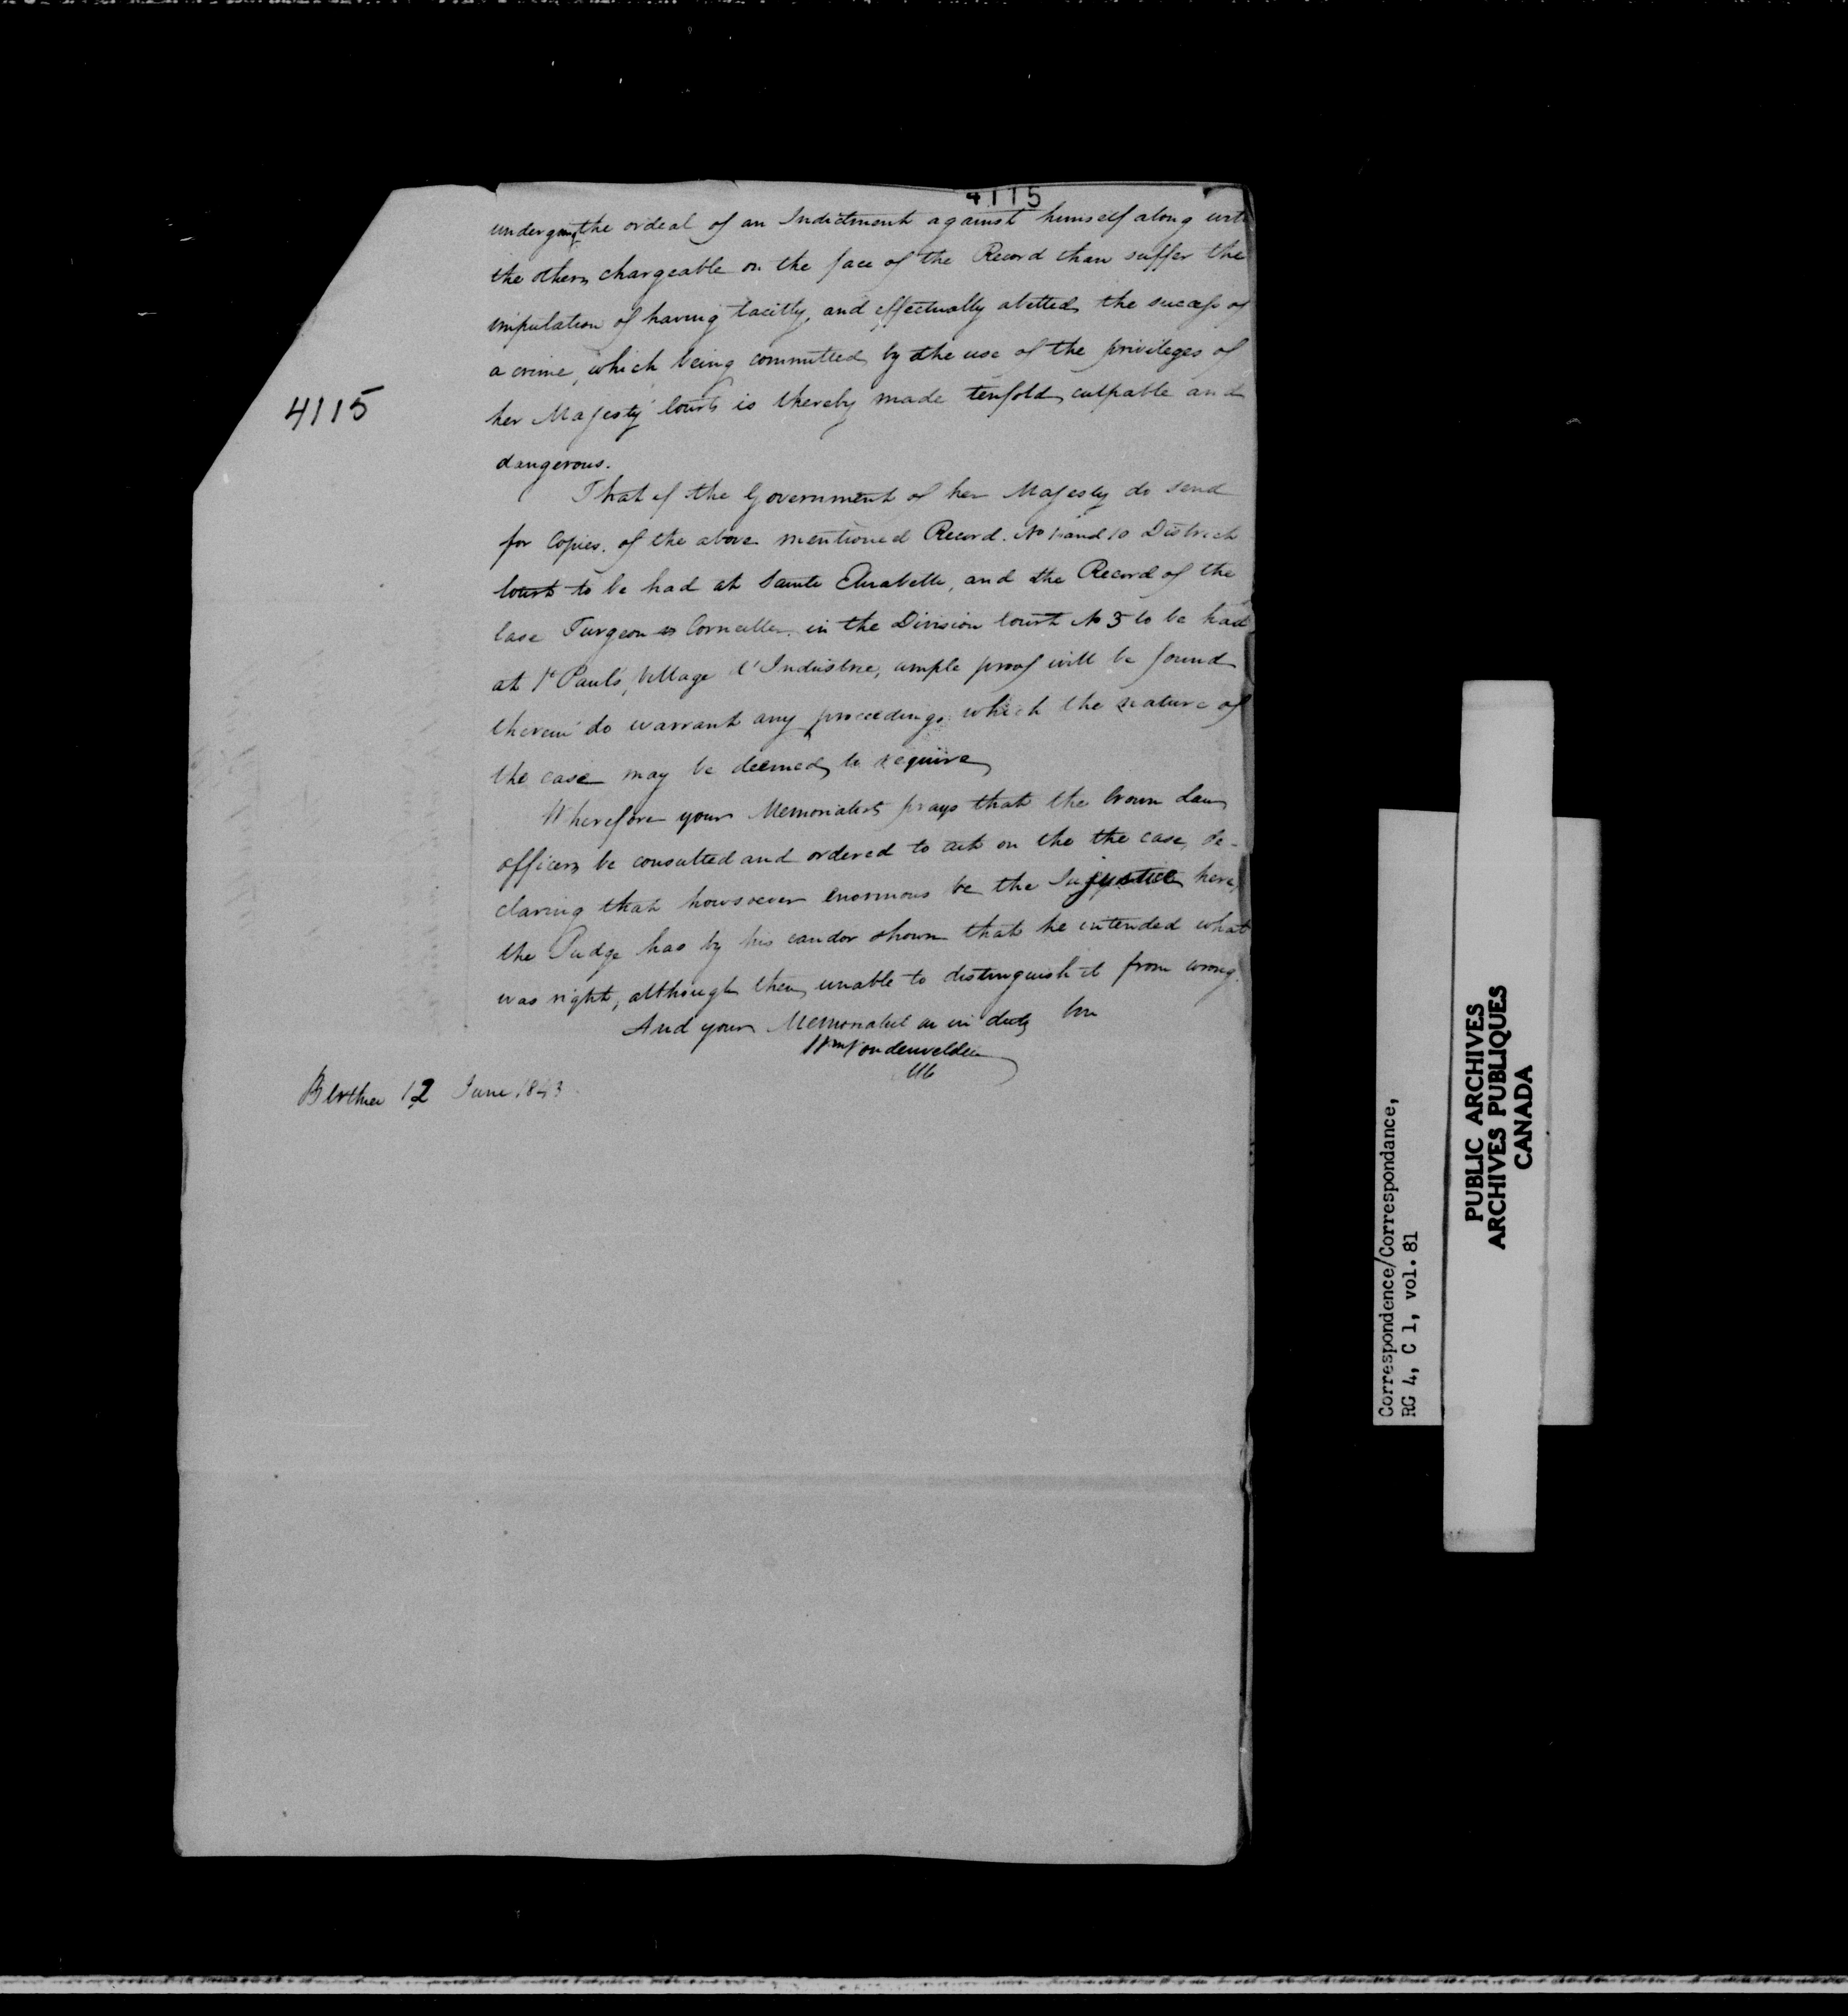 4115
undergoing the ordeal of an Indictment against himself along with
the others chargeable on the face of the Record than suffer the
imputation of having tacitly, and effectually abetted the success of
a crime, which being committed by the use of the privileges of
4115
her Majesty' Courts is thereby made tenfold culpable and
dangerous.
That if the Government of her Majesty do send
for Copies. of the above mentioned Record. No 1 and 10 District
Court to be had at Sainte Elizabeth, and the Record of the
Case Turgeon vs Corneille. in the Division Court No 3 to be had
at St Pauls, Village d'Industrie, ample proof will be found
therein to warrant any proceedings which the nature of
the case may be deemed to require
Wherefore your Memorialist prays that the Crown Law
officers be consulted and ordered to act on the the case, de-
claring that howsoever enormous be the Injustice here,
the Judge has by his candor shown that he intended what
was right, although then unable to distinguish it from wrong.
And your Memorialist as in duty
Wm Vondenvelden
Berthier 12 June 1843
Correspondence/Correspondance,
RG 4, C 1, vol. 81
PUBLIC ARCHIVES
ARCHIVES PUBLIQUES
CANADA